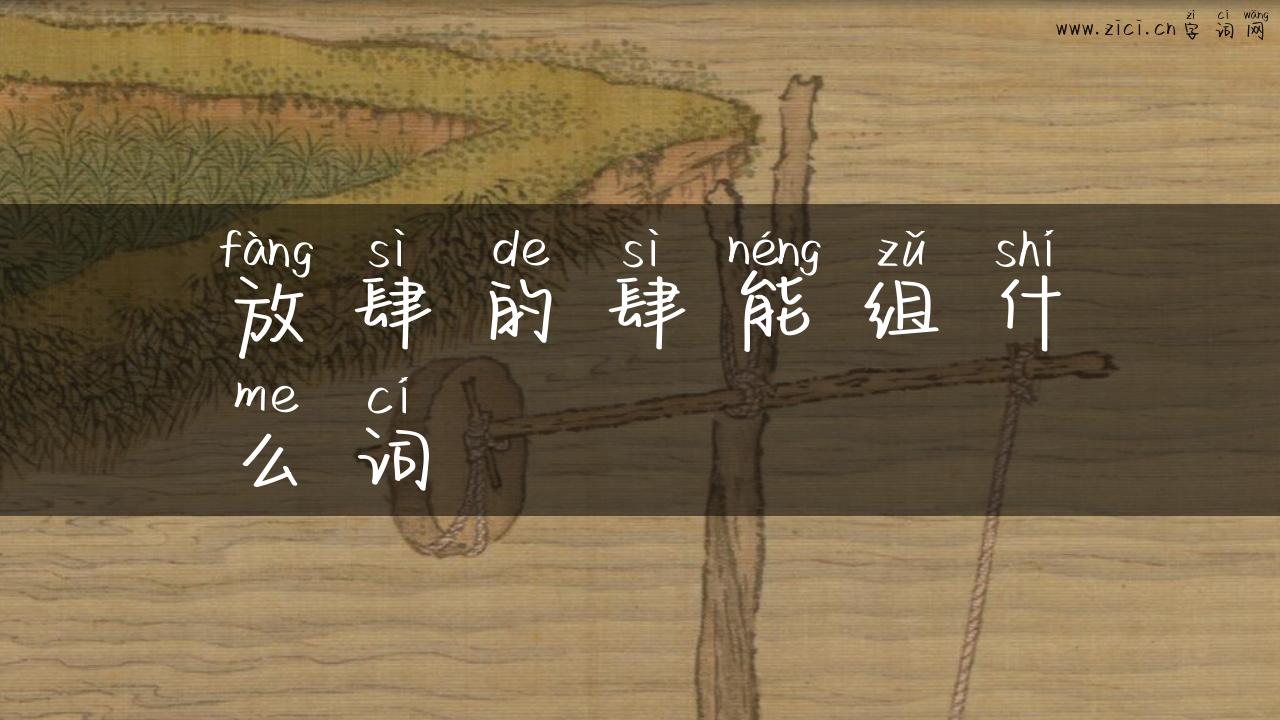 zì cí wǎng
www.zici.cn 字词网
fàng sì de sì néng zǔ shí
放肆的肆能组什
me cí
么词